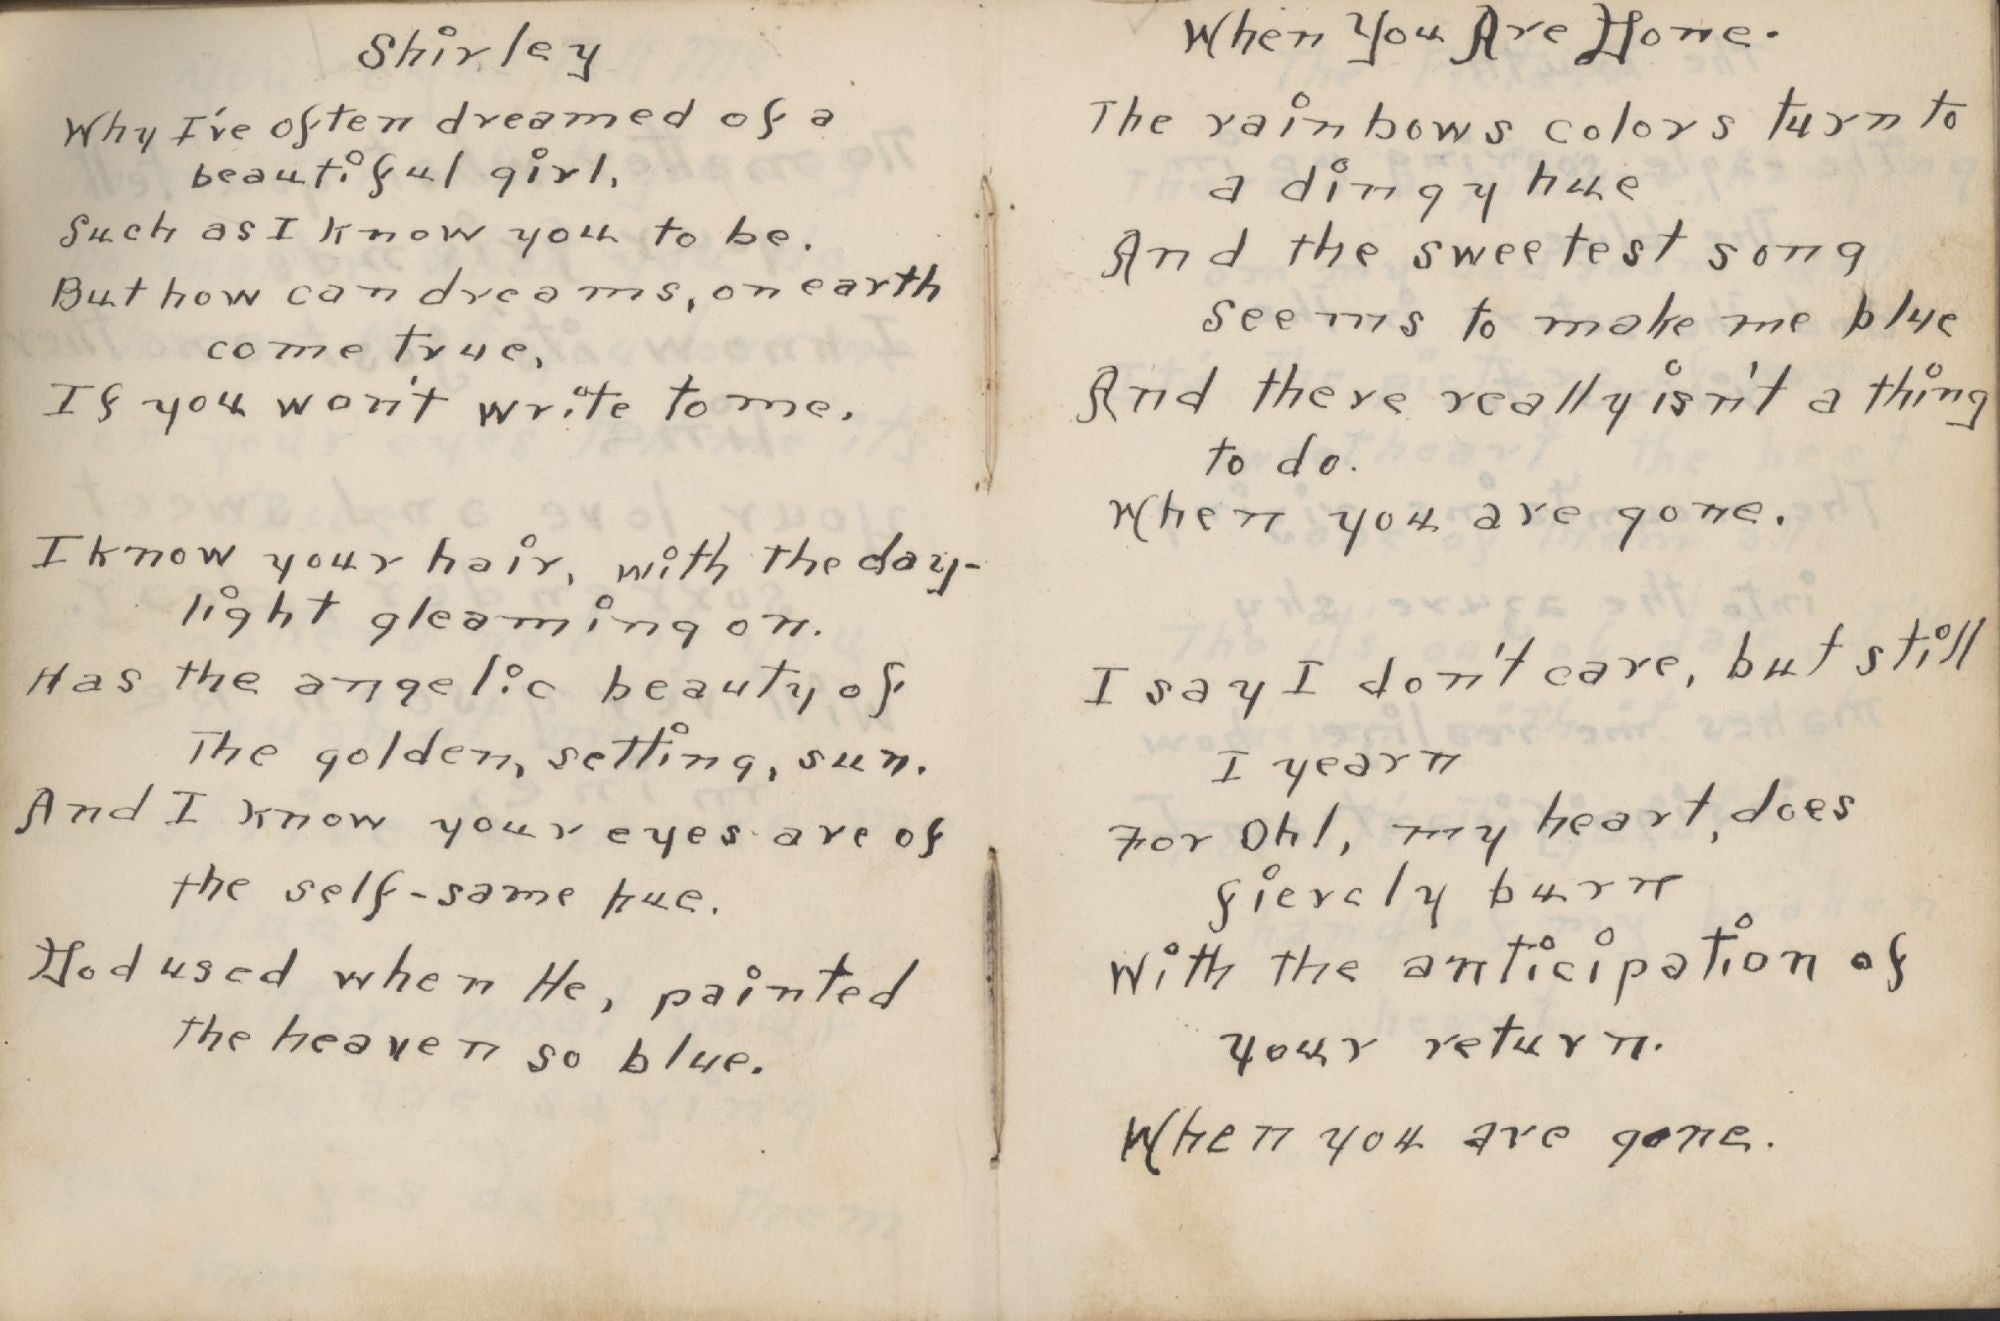 Shirley
Why I've often dreamed of a
beautiful girl,
Such as I know you to be.
But how can dreams, on earth
come true,
If you won't write to me.
I know your hair, with the day-
light gleaming on.
Has the angelic beauty of
The golden, setting, sun.
And I know your eyes are of
the self-same hue.
God used when He, painted
the heaven so blue.
When You Are Gone.
The rainbows colors turn to
a dingy hue
And the sweetest song
seems to make me blue
And there really isn't a thing
to do.
When you are gone.
I say I don't care, but still
I yearn
For Oh!, my heart, does
fiercly burn
With the anticipation of
your return.
When you are gone.